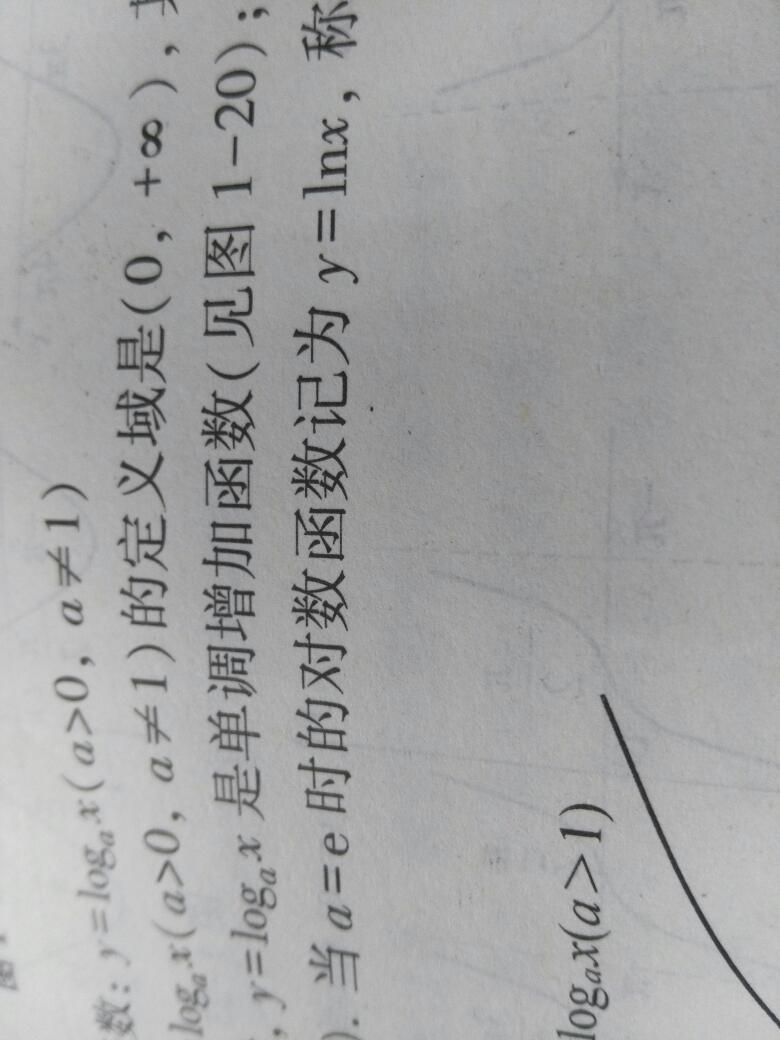 数: y=logₐx(a>0, a≠1)
logₐx(a>0, a≠1)的定义域是(0, +∞),
, y=logₐx 是单调增加函数(见图 1-20);
). 当 a=e 时的对数函数记为 y=lnx, 称
logₐx(a>1)